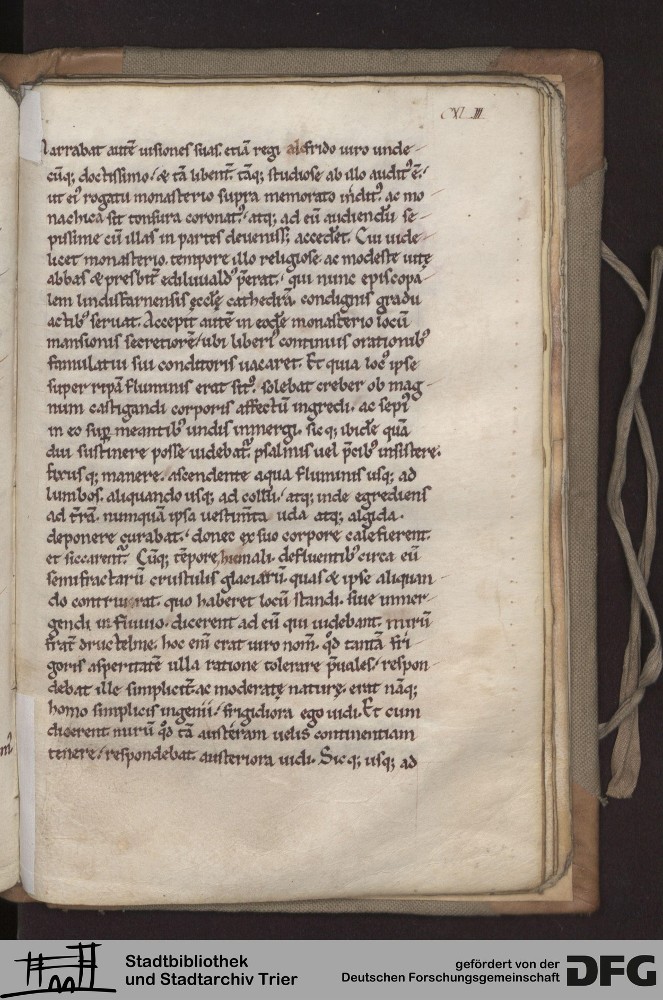 CXLIII
Narrabat autē uisiones suas. etiā regi alcfrido uiro unde-
cūq; doctissimo / & tā libent̄. tāq; studiose ab illo audit' ē.
ut ei' rogatu monasterio supra memorato indit'. ac mo
nachica sit tonsura coronat'. atq; ad eū audiendū se-
pissime cū illas in partes deuenisset accederet. Cui uide-
licet monasterio. tempore illo religiose ac modeste uitę
abbas & presbit̄ ediluuald' p̄erat. qui nunc episcopa
lem lindisfarnensis ęcclę cathedrā. condignis gradu
actib' seruat. Accepit autē in eodē monasterio locū
mansionis secretiorē / ubi liberi' continuis orationib'
famulatui sui conditoris uacaret. Et quia loc' ipse
super ripā fluminis erat sit'. solebat creber ob mag-
num castigandi corporis affectū ingredi. ac sepi'
in eo sup meantib' undis inmergi. sicq; ibidē quā
diu sustinere posse uidebat. psalmis uel p̄cib' insistere.
fixusq; manere. ascendente aqua fluminis usq; ad
lumbos. aliquando usq; ad collū / atq; inde egrediens
ad t̄rā. numquā ipsa uestim̄ta uda atq; algida.
deponere curabat. donec ex suo corpore calefierent.
et siccarent. Cūq; tēpore hiemali. defluentib' circa eū
semifractarū crustulis glaciarū. quas & ipse aliquan
do contriuerat. quo haberet locū standi. siue inmer-
gendi in fluuio. dicerent ad eū qui uidebant. mirū
frat̄ dructelme. hoc enī erat uiro nom̄. qd̄ tantā fri-
goris asperitatē ulla ratione tolerare p̄uales. respon-
debat ille simplicit̄. ac moderatę naturę. erat nāq;
homo simplicis ingenii / frigidiora ego uidi. Et cum
dicerent mirū qd̄ tā austeram uelis continentiam
tenere / respondebat. austeriora uidi. Sicq; usq; ad
Stadtbibliothek
und Stadtarchiv Trier
gefördert von der
Deutschen Forschungsgemeinschaft
DFG